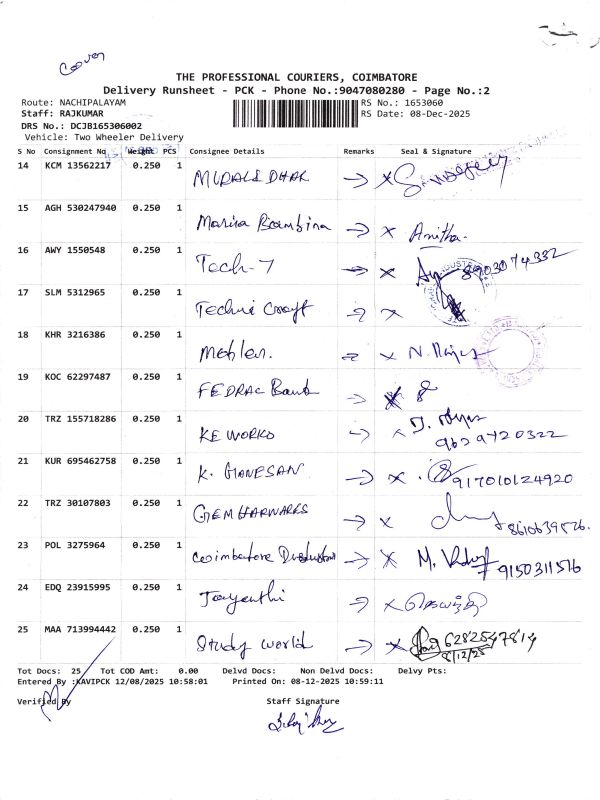 Cover
THE PROFESSIONAL COURIERS, COIMBATORE
Delivery Runsheet - PCK - Phone No.:9047080280 - Page No.:2
Route: NACHIPALAYAM RS No.: 1653060
Staff: RAJKUMAR RS Date: 08-Dec-2025
DRS No.: DCJB165306002
Vehicle: Two Wheeler Delivery
S No Consignment No Weight PCS Consignee Details Remarks Seal & Signature
14 KCM 13562217 0.250 1 MURALI DHAR
15 AGH 530247940 0.250 1 Anitha.
16 AWY 1550548 0.250 1 Tech-7 8903074332
17 SLM 5312965 0.250 1 Techni Craft
18 KHR 3216386 0.250 1 Mohler.
19 KOC 62297487 0.250 1 FEDRAL Bank
20 TRZ 155718286 0.250 1 KE WORKS 9629720322
21 KUR 695462758 0.250 1 K. GANESAN 917010124920
22 TRZ 30107803 0.250 1 GEM HARWARKS 8610639576.
23 POL 3275964 0.250 1 Coimbatore M. 9150311516
24 EDQ 23915995 0.250 1 Jayanthi ஜெயந்தி
25 MAA 713994442 0.250 1 Study world 6282547819
8/12/25
Tot Docs: 25 Tot COD Amt: 0.00 Delvd Docs: Non Delvd Docs: Delvy Pts:
Entered By :KAVIPCK 12/08/2025 10:58:01 Printed On: 08-12-2025 10:59:11
Verified By Staff Signature